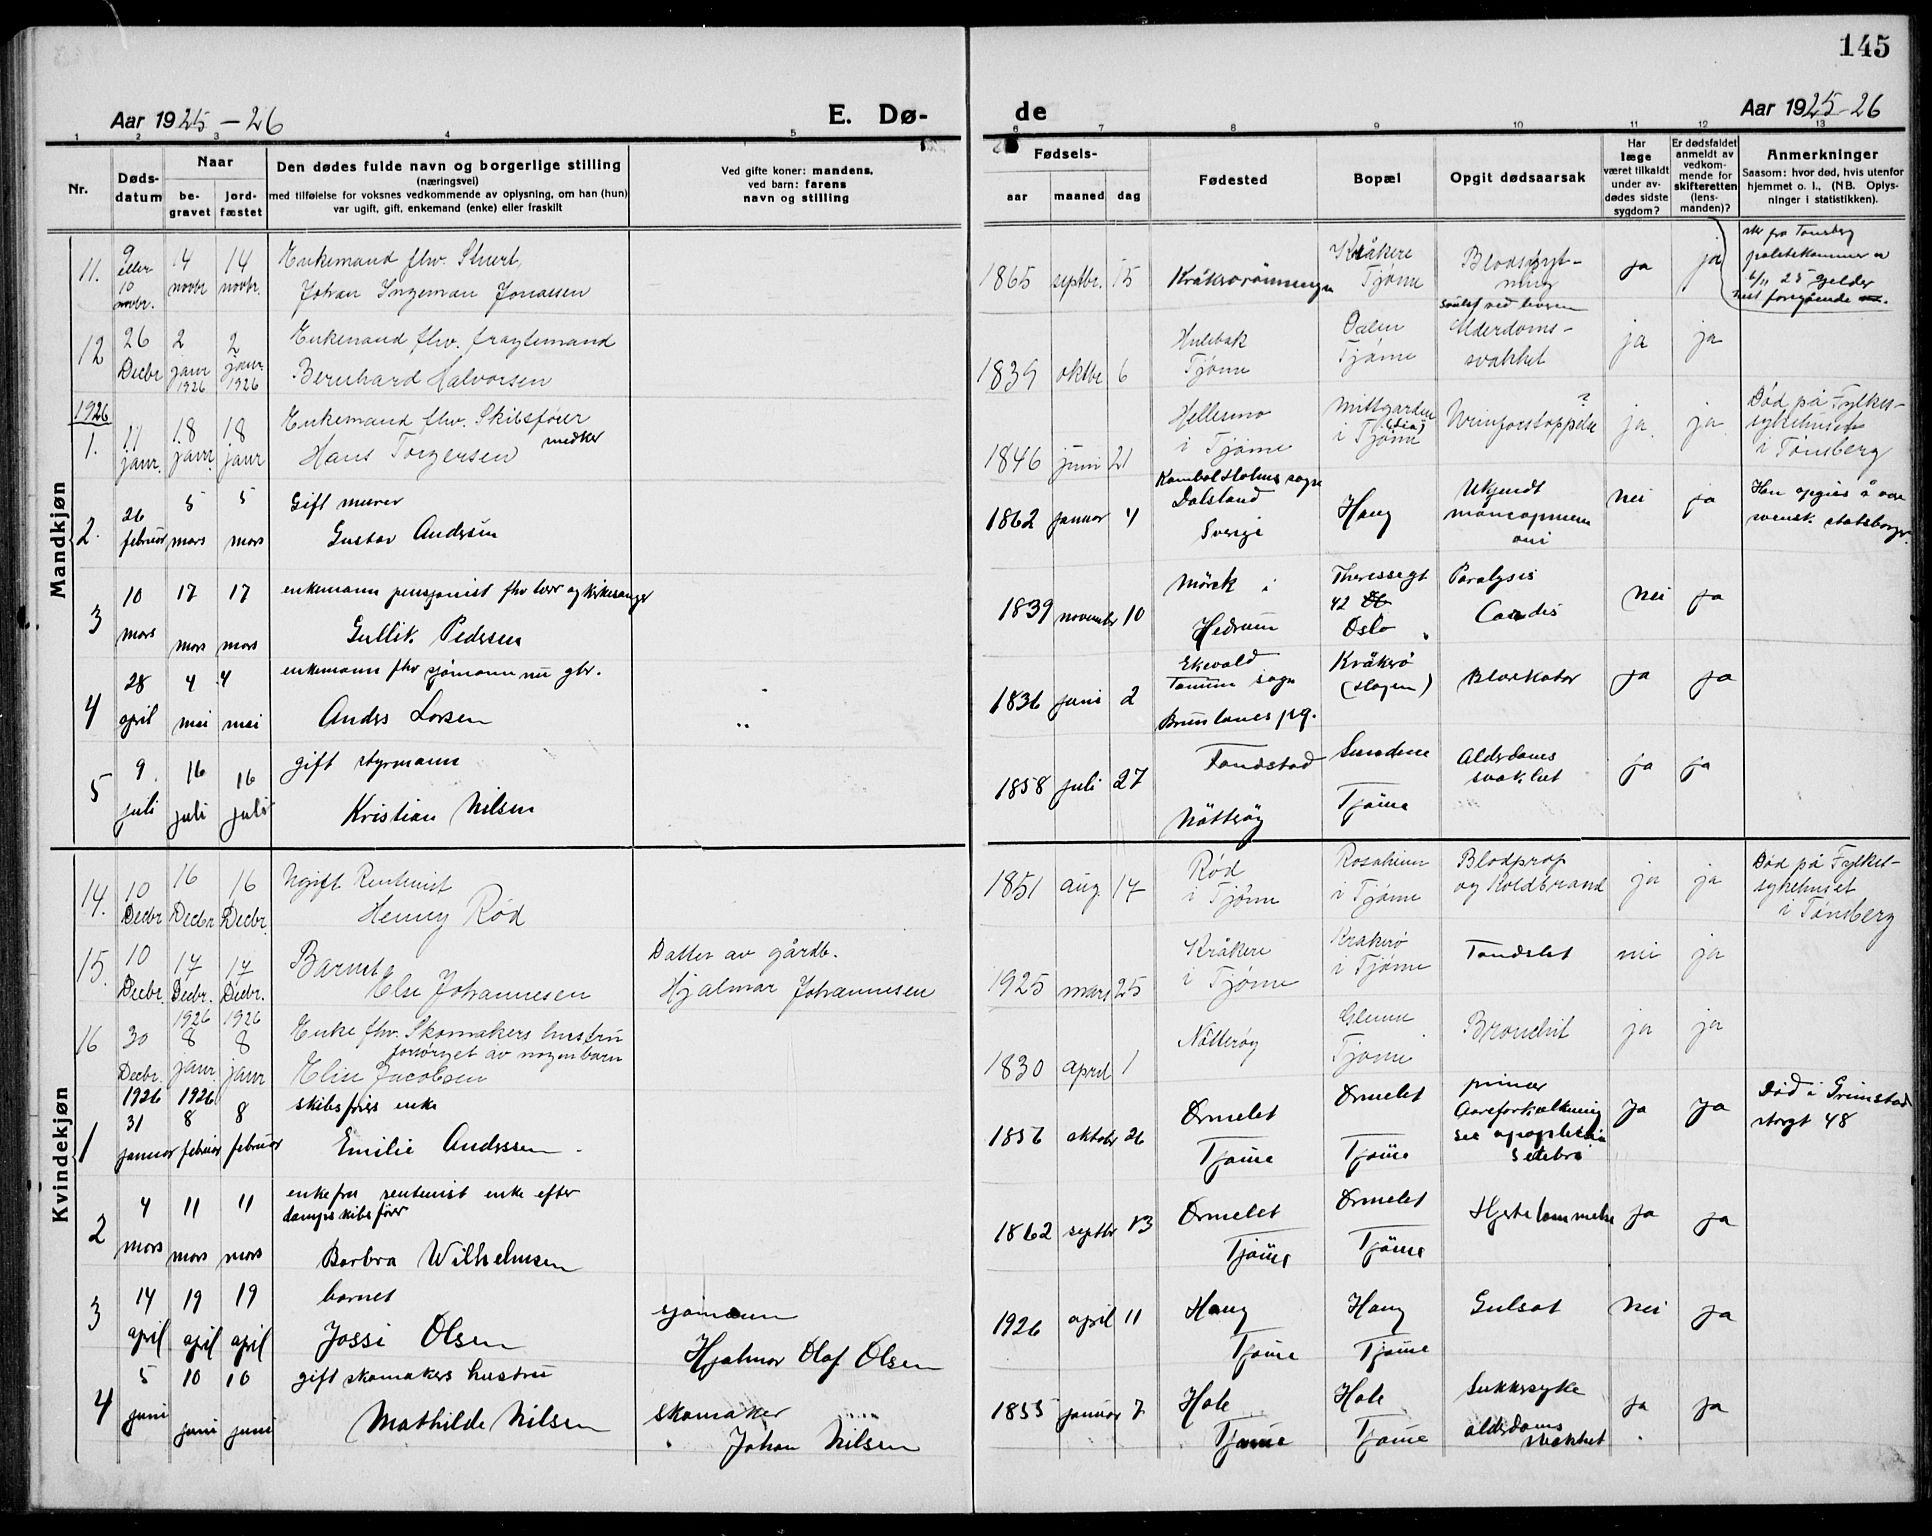 145
Aar 1925-26
E. Dø-
de
Aar 1925-26
1 2 3 4 5
6 7 8 9 10 11 12 13
Nr.
Døds-
datum
Naar
be-
gravet
jord-
fæstet
Den dødes fulde navn og borgerlige stilling
(næringsvei)
med tilføielse for voksnes vedkommende av oplysning, om han (hun)
var ugift, gift, enkemand (enke) eller fraskilt
Ved gifte koner: mandens,
ved barn: farens
navn og stilling
Fødsels-
aar maaned dag
Fødested
Bopæl
Opgit dødsaarsak
Har
læge
været tilkaldt
under av-
dødes sidste
sygdom?
Er dødsfaldet
anmeldt av
vedkom-
mende for
skifteretten
(lens-
manden)?
Anmerkninger
Saasom: hvor død, hvis utenfor
hjemmet o. l., (NB. Oplys-
ninger i statistikken).
Mandkjøn
11. 9 eller 10 novbr. 14 novbr 14 novbr.
Enkemand fhv.
Johan Ingeman Jonassen
1865 septbr. 15
Kråkere
Tjøme
ja ja
fra Tønsberg
politikammer
6/11 25 gjelder
nest foregående
12 26 Decbr 2 janr 1926 2 janr 1926
Enkemand fhv. fragtemand
Bernhard Halvorsen
1839 oktbr 6
Hulebak
Tjøme
Tjøme
Alderdoms-
svakhet
ja ja
1926
1. 11 janr. 18 janr. 18 janr
Enkemand fhv. Skibsfører
Hans Torgersen
1846 juni 21
i Tjøme
Mittgarden
i Tjøme
Urinforstoppelse ?
ja. ja
Død på Fylkes-
sykehuset
i Tønsberg
2. 26 februar 5 mars 5 mars
Gift murer
Gustav Andersen
1862 januar 4
sogn
Dalsland
Sverige
Haug
Ukjendt
nei ja
Han opgies å være
svensk statsborger.
3 10 mars 17 mars 17 mars
enkemann pensjonist fhv lærer og kirkesanger
Gullik Pedersen
1839 november 10
Mørck i
Hedrum
Theresesgt
42
Oslo
Paralysis
Cordis
nei ja
4 28 april 4 mei 4 mei
enkemann fhv sjømann nu gbr.
Anders Larsen
1836 juni 2
Ekevald
Tanum sogn
Brunlanes pg.
Kråkerø
(Hagen)
ja ja
5 9. juli 16 juli 16 juli
gift styrmann
Kristian Nilsen
1858 juli 27
Nøtterøy
Sundene
Tjøme
Alderdoms
svakhet
ja ja
Kvindekjøn
14. 10 Decbr. 16 Decbr 16 Decbr.
Ugift Rentenist
Henny Rød
1851 aug. 17
Rød
i Tjøme
Rosaheim
i Tjøme
Blodprop
og Koldbrand
ja ja
Død på Fylkes-
sykehuset
i Tønsberg
15. 10 Decbr. 17 Decbr. 17 Decbr.
Barnet
Else Johannesen
Datter av gårdb.
Hjalmar Johannesen
1925 mars 25
Kråkere
i Tjøme
Kråkerø
i Tjøme
Tandslet
nei ja
16 30 Decbr. 1926 8 janr. 1926 8 janr
Enke fhv. Skomakers hustru
forsørget av nogen barn
Elise Jacobsen
1830 april 1
Nøtterøy
Glenne
Tjøme
Bronchit
ja ja
1 1926 31 januar 1926 8 februar 8 februar
skibsførers enke
Emilie Anderssen.
1856 oktobr 26
Ormelet
Tjøme
Ormelet
Tjøme
primær
Aareforkalkning
sec apoplexia
cerebri
ja ja
Død i Grimstad
storgt 48
2 4 mars 11 mars 11 mars
enkefru rentenist enke efter
dampskibsfører
Barbra Wilhelmsen
1862 septbr 13
Ormelet
Tjøme
Ormelet
Tjøme
Hjertelammelse
ja ja
3 14 april 19 april 19 april
barnet
Jossi Olsen
sjømann
Hjalmar Olaf Olsen
1926 april 11
Haug
Tjøme
Haug
Tjøme
Gulsot
nei ja
4 5 juni 10 juni 10 juni
gift skomakers hustru
Mathilde Nilsen
skomaker
Johan Nilsen
1855 januar 7
Hole
Tjøme
Hole
Tjøme
Sukkersyke
alderdoms
svakhet
ja ja